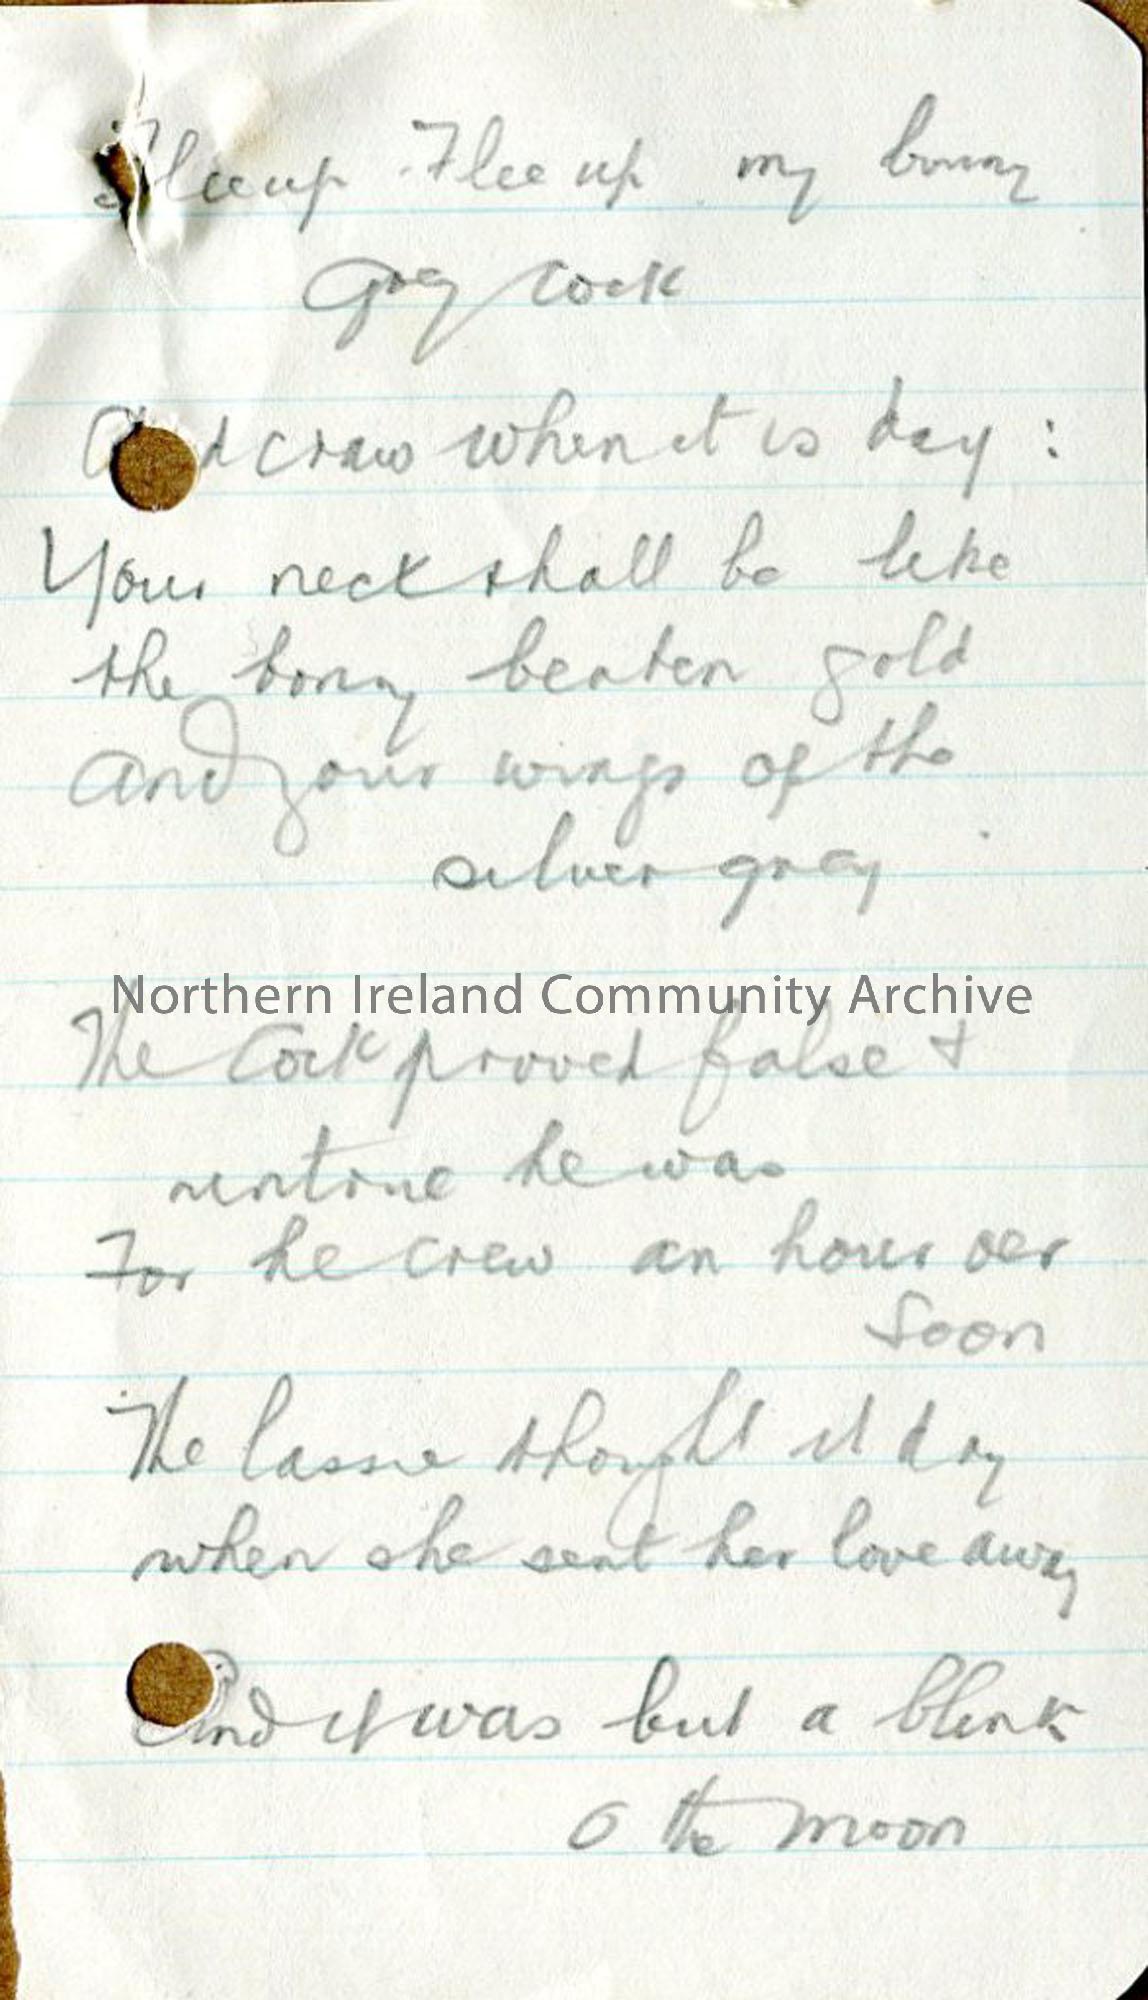 Flee up Flee up my bonny
grey cock
And craw when it is day :
Your neck shall be like
the bonny beaten gold
and your wings of the
silver grey
Northern Ireland Community Archive
The Cock proved false &
untrue he was
For he crew an hour oer
soon
The lassie thought it day
when she sent her love away
And it was but a blink
o the moon